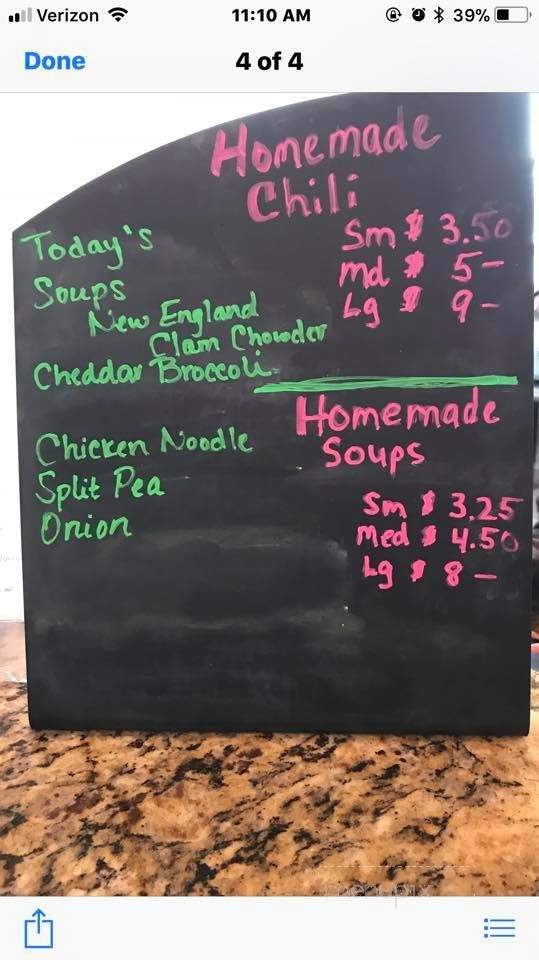 Verizon
11:10 AM
39%
Done
4 of 4
Homemade
Chili
Sm $ 3.50
md $ 5-
Lg $ 9-
Today's
Soups
New England
Clam Chowder
Cheddar Broccoli
Chicken Noodle
Split Pea
Onion
Homemade
Soups
Sm $ 3.25
Med $ 4.50
Lg $ 8-
menupix